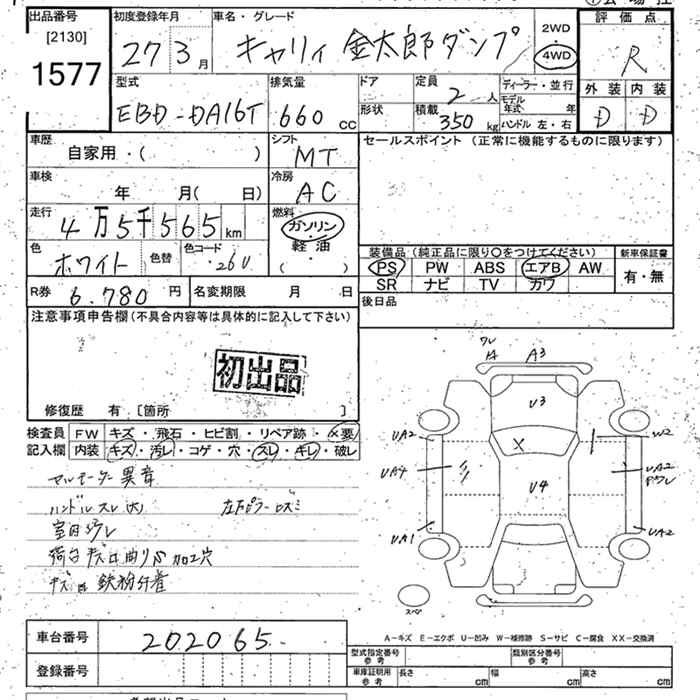 出品番号
[2130]
1577
初度登録年月
27 3月
車名・グレード
キャリィ 金太郎ダンプ
2WD
4WD
評価点
R
型式
EBD-DA16T
排気量
660 cc
ドア
形状
定員
2人
積載
350 kg
ディーラー・並行
モデル年式 年
ハンドル 左・右
外装 内装
D D
車歴
自家用・( )
シフト
MT
セールスポイント (正常に機能するものに限ります)
車検
年 月( 日)
冷房
AC
走行
4万5千565 km
燃料
ガソリン
軽油
( ・ )
色
ホワイト
色替
色コード
・26U
装備品 (純正品に限り○をつけてください)
PS PW ABS エアB AW
SR ナビ TV カワ
新車保証書
有・無
R券 6,780円
名変期限 月 日
後日品
注意事項申告欄 (不具合内容等は具体的に記入して下さい)
初出品
修復歴 有 [箇所 ]
検査員記入欄
FW キズ・飛石・ヒビ割・リペア跡・×要
内装 キズ・汚レ・コゲ・穴・スレ・キレ・破レ
異音
ハンドルスレ(大)
荷台キズ凹曲り 加工穴
鉄粉付着
A3
U3
×
U4
UA2
UA4
UA1
W2
UA2
UA2
A-キズ E-エクボ U-凹み W-補修跡 S-サビ C-腐食 XX-交換済
車台番号
202065
登録番号
型式指定番号
参考
類別区分番号
参考
車庫証明用
参考
長さ cm
幅 cm
高さ cm